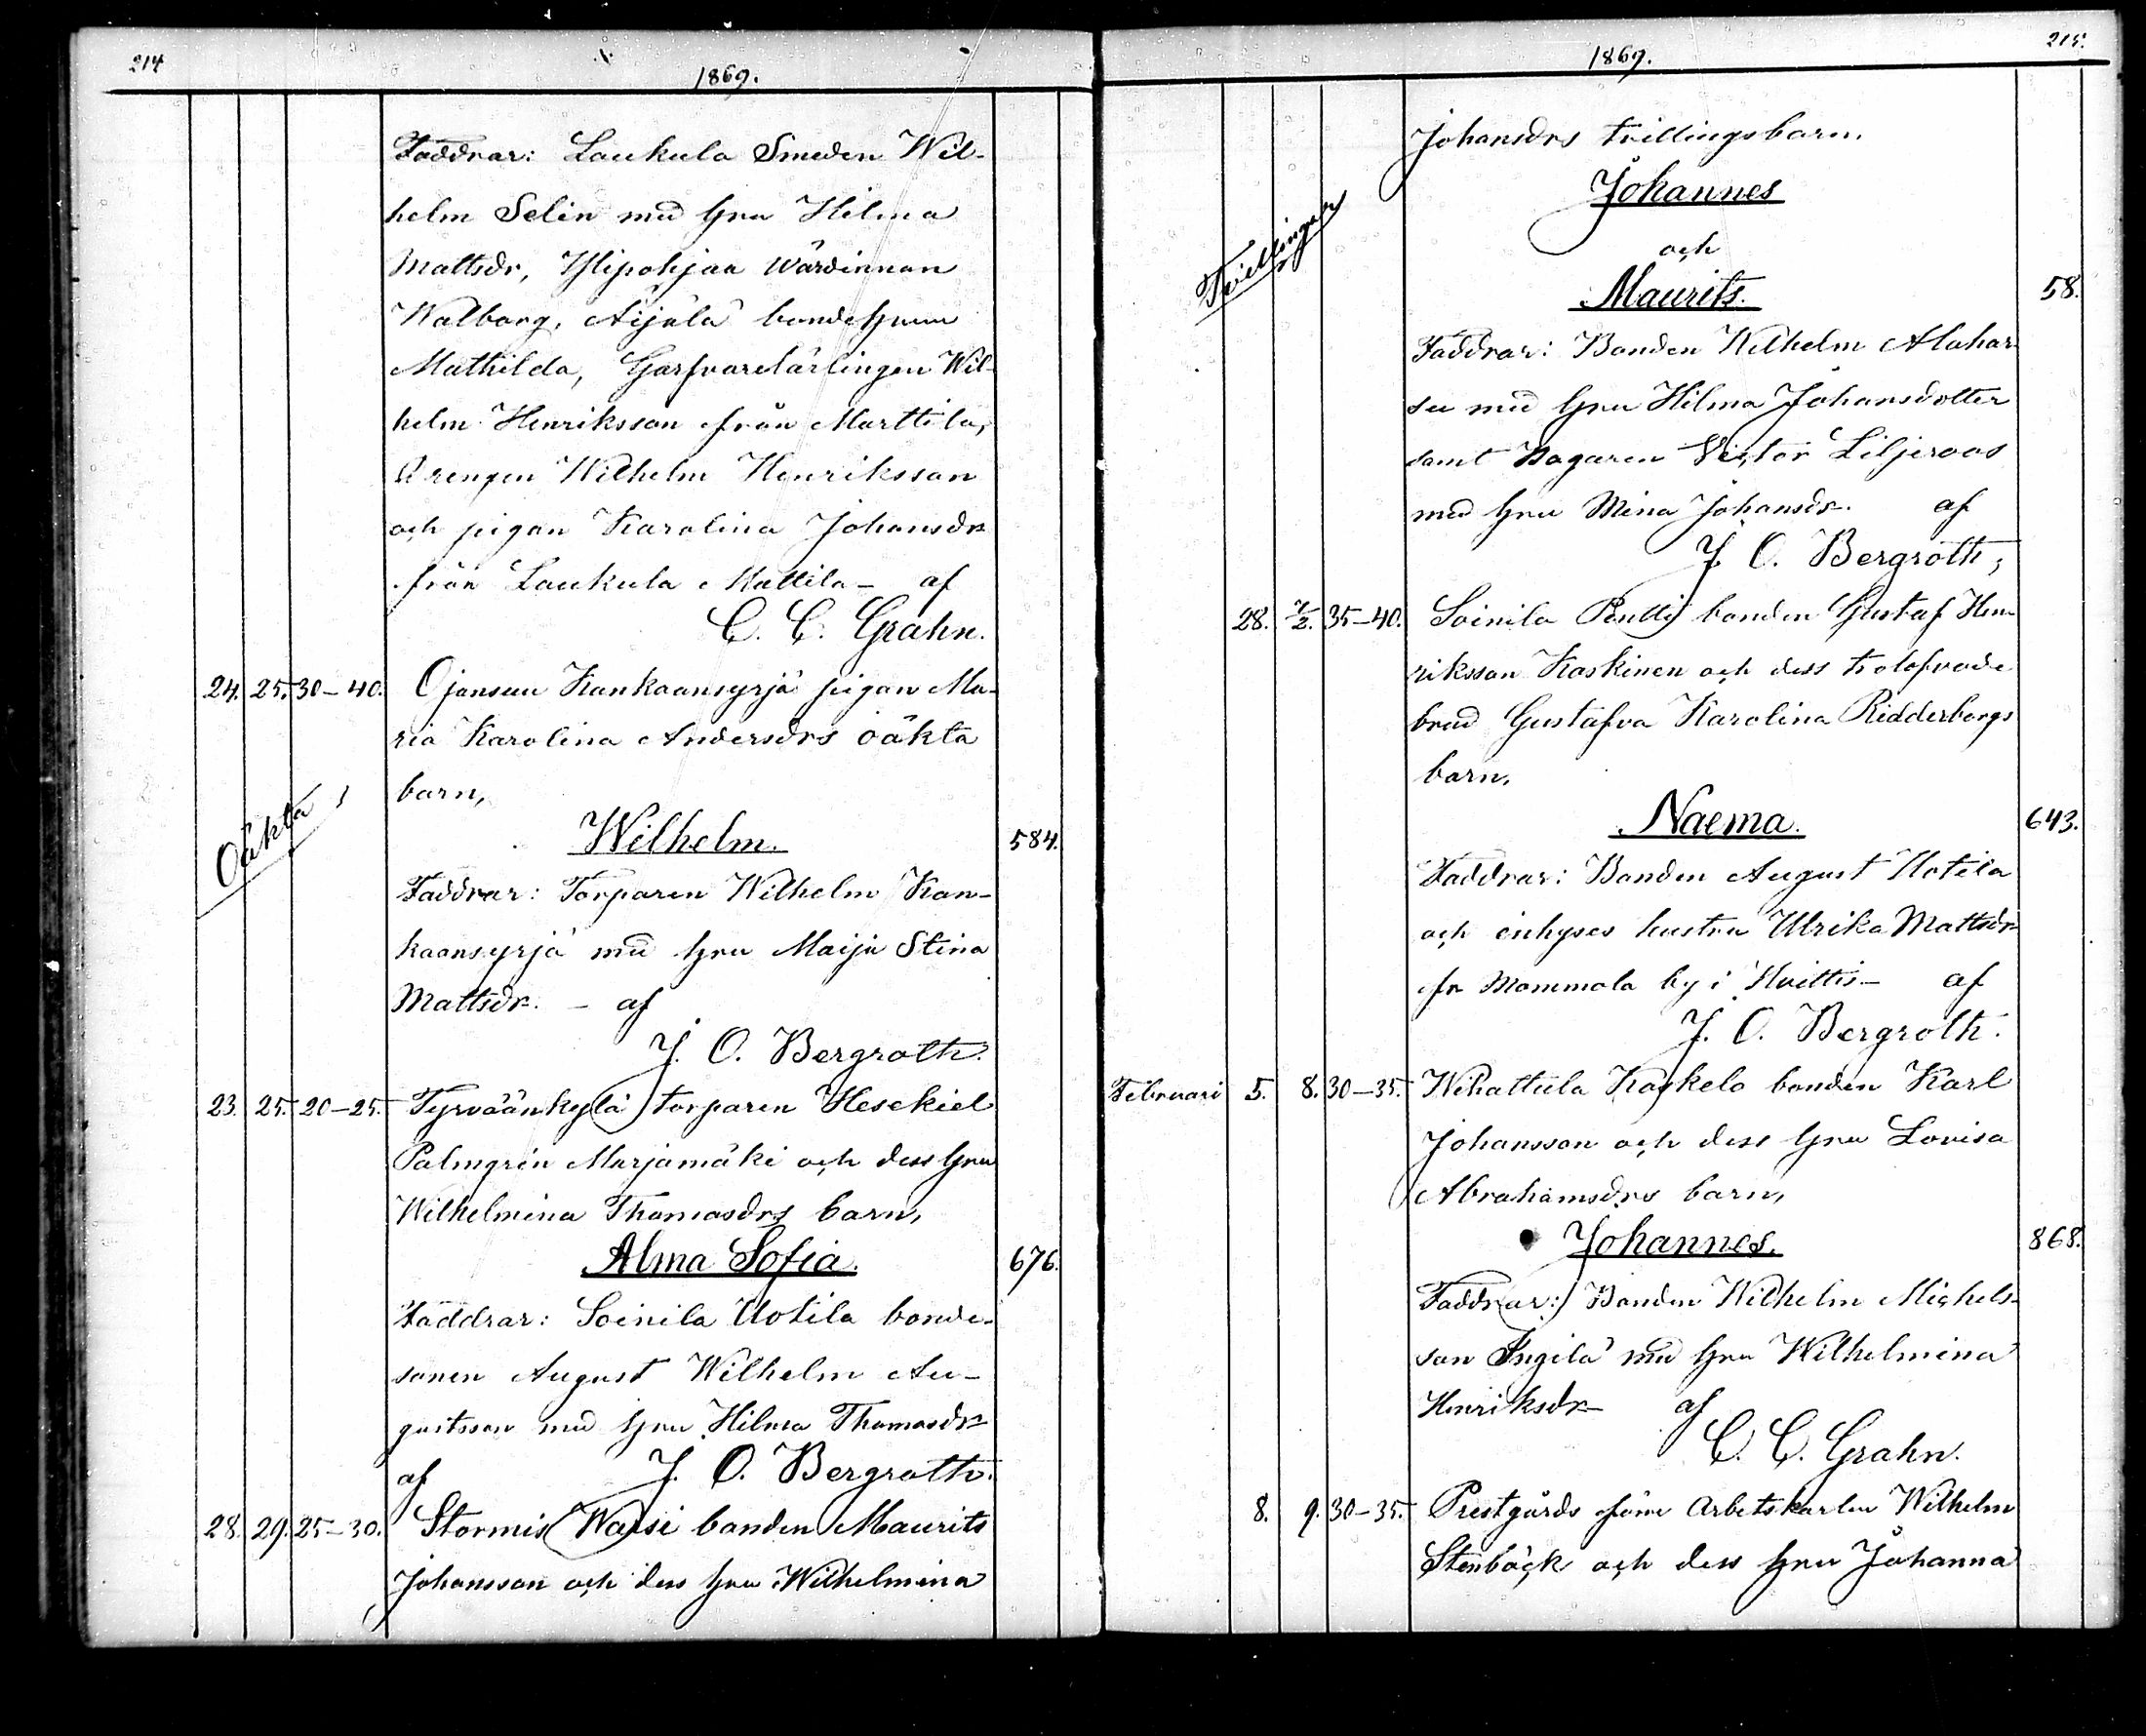 214
1869.
Faddrar: Laukula Smeden Wil-
helm Selin med hru Hilma
Mattsdr, Ylipohjaa wärdinnan
Walborg, Äijälä bondehrun
Mathilda, Garfvarelärlingen Wil-
helm Henriksson från Marttila,
Drengen Wilhelm Henriksson
och pigan Karolina Johansdr
från Laukula Mattila - af
C. C. Grahn.
24. 25. 30-40. Ojansuu Kankaansyrjä pigan Ma-
ria Karolina Andersdrs oäkta
barn,
Oäkta
Wilhelm. 584.
Faddrar: Torparen Wilhelm Kan-
kaansyrjä med hru Maija Stina
Mattsdr. - af
J. O. Bergroth.
23. 25. 20-25. Tyrväänkylä torparen Hesekiel
Palmgrén Marjamäki och dess hru
Wilhelmina Thomasdrs barn,
Alma Sofia. 676.
Faddrar: Soinila Uotila bonde-
sonen August Wilhelm Au-
gustsson med hru Hilma Thomasdr
af J. O. Bergroth.
28. 29. 25-30. Stormis Wassi bonden Maurits
Johansson och dess hru Wilhelmina
215.
1869.
Johansdrs tvillingsbarn.
Johannes
och
Tvillingar
Maurits. 58.
Faddrar: Bonden Wilhelm Alahas-
su med hru Hilma Johansdotter
samt Bagaren Victor Liljeroos
med hru Mina Johansdr. af
J. O. Bergroth;
28. 7/2. 35-40. Soinila Penttij bonden Gustaf Hen-
riksson Koskinen och dess trolofvade
brud Gustafva Karolina Ridderborgs
barn,
Naema. 643.
Faddrar: Bonden August Uotila
och inhyses hustru Ulrika Mattsdr
fr Mommola by i Hvittis - af
J. O. Bergroth.
Februari 5. 8. 30-35. Wihattula Kaskelo bonden Karl
Johansson och dess hru Lovisa
Abrahamsdrs barn,
Johannes. 868.
Faddrar: Bonden Wilhelm Michels-
son Ingilä med hru Wilhelmina
Henriksdr - af
C. C. Grahn.
8. 9. 30-35. Prestgårds förre Arbetskarlen Wilhelm
Stenbäck och dess hru Johanna